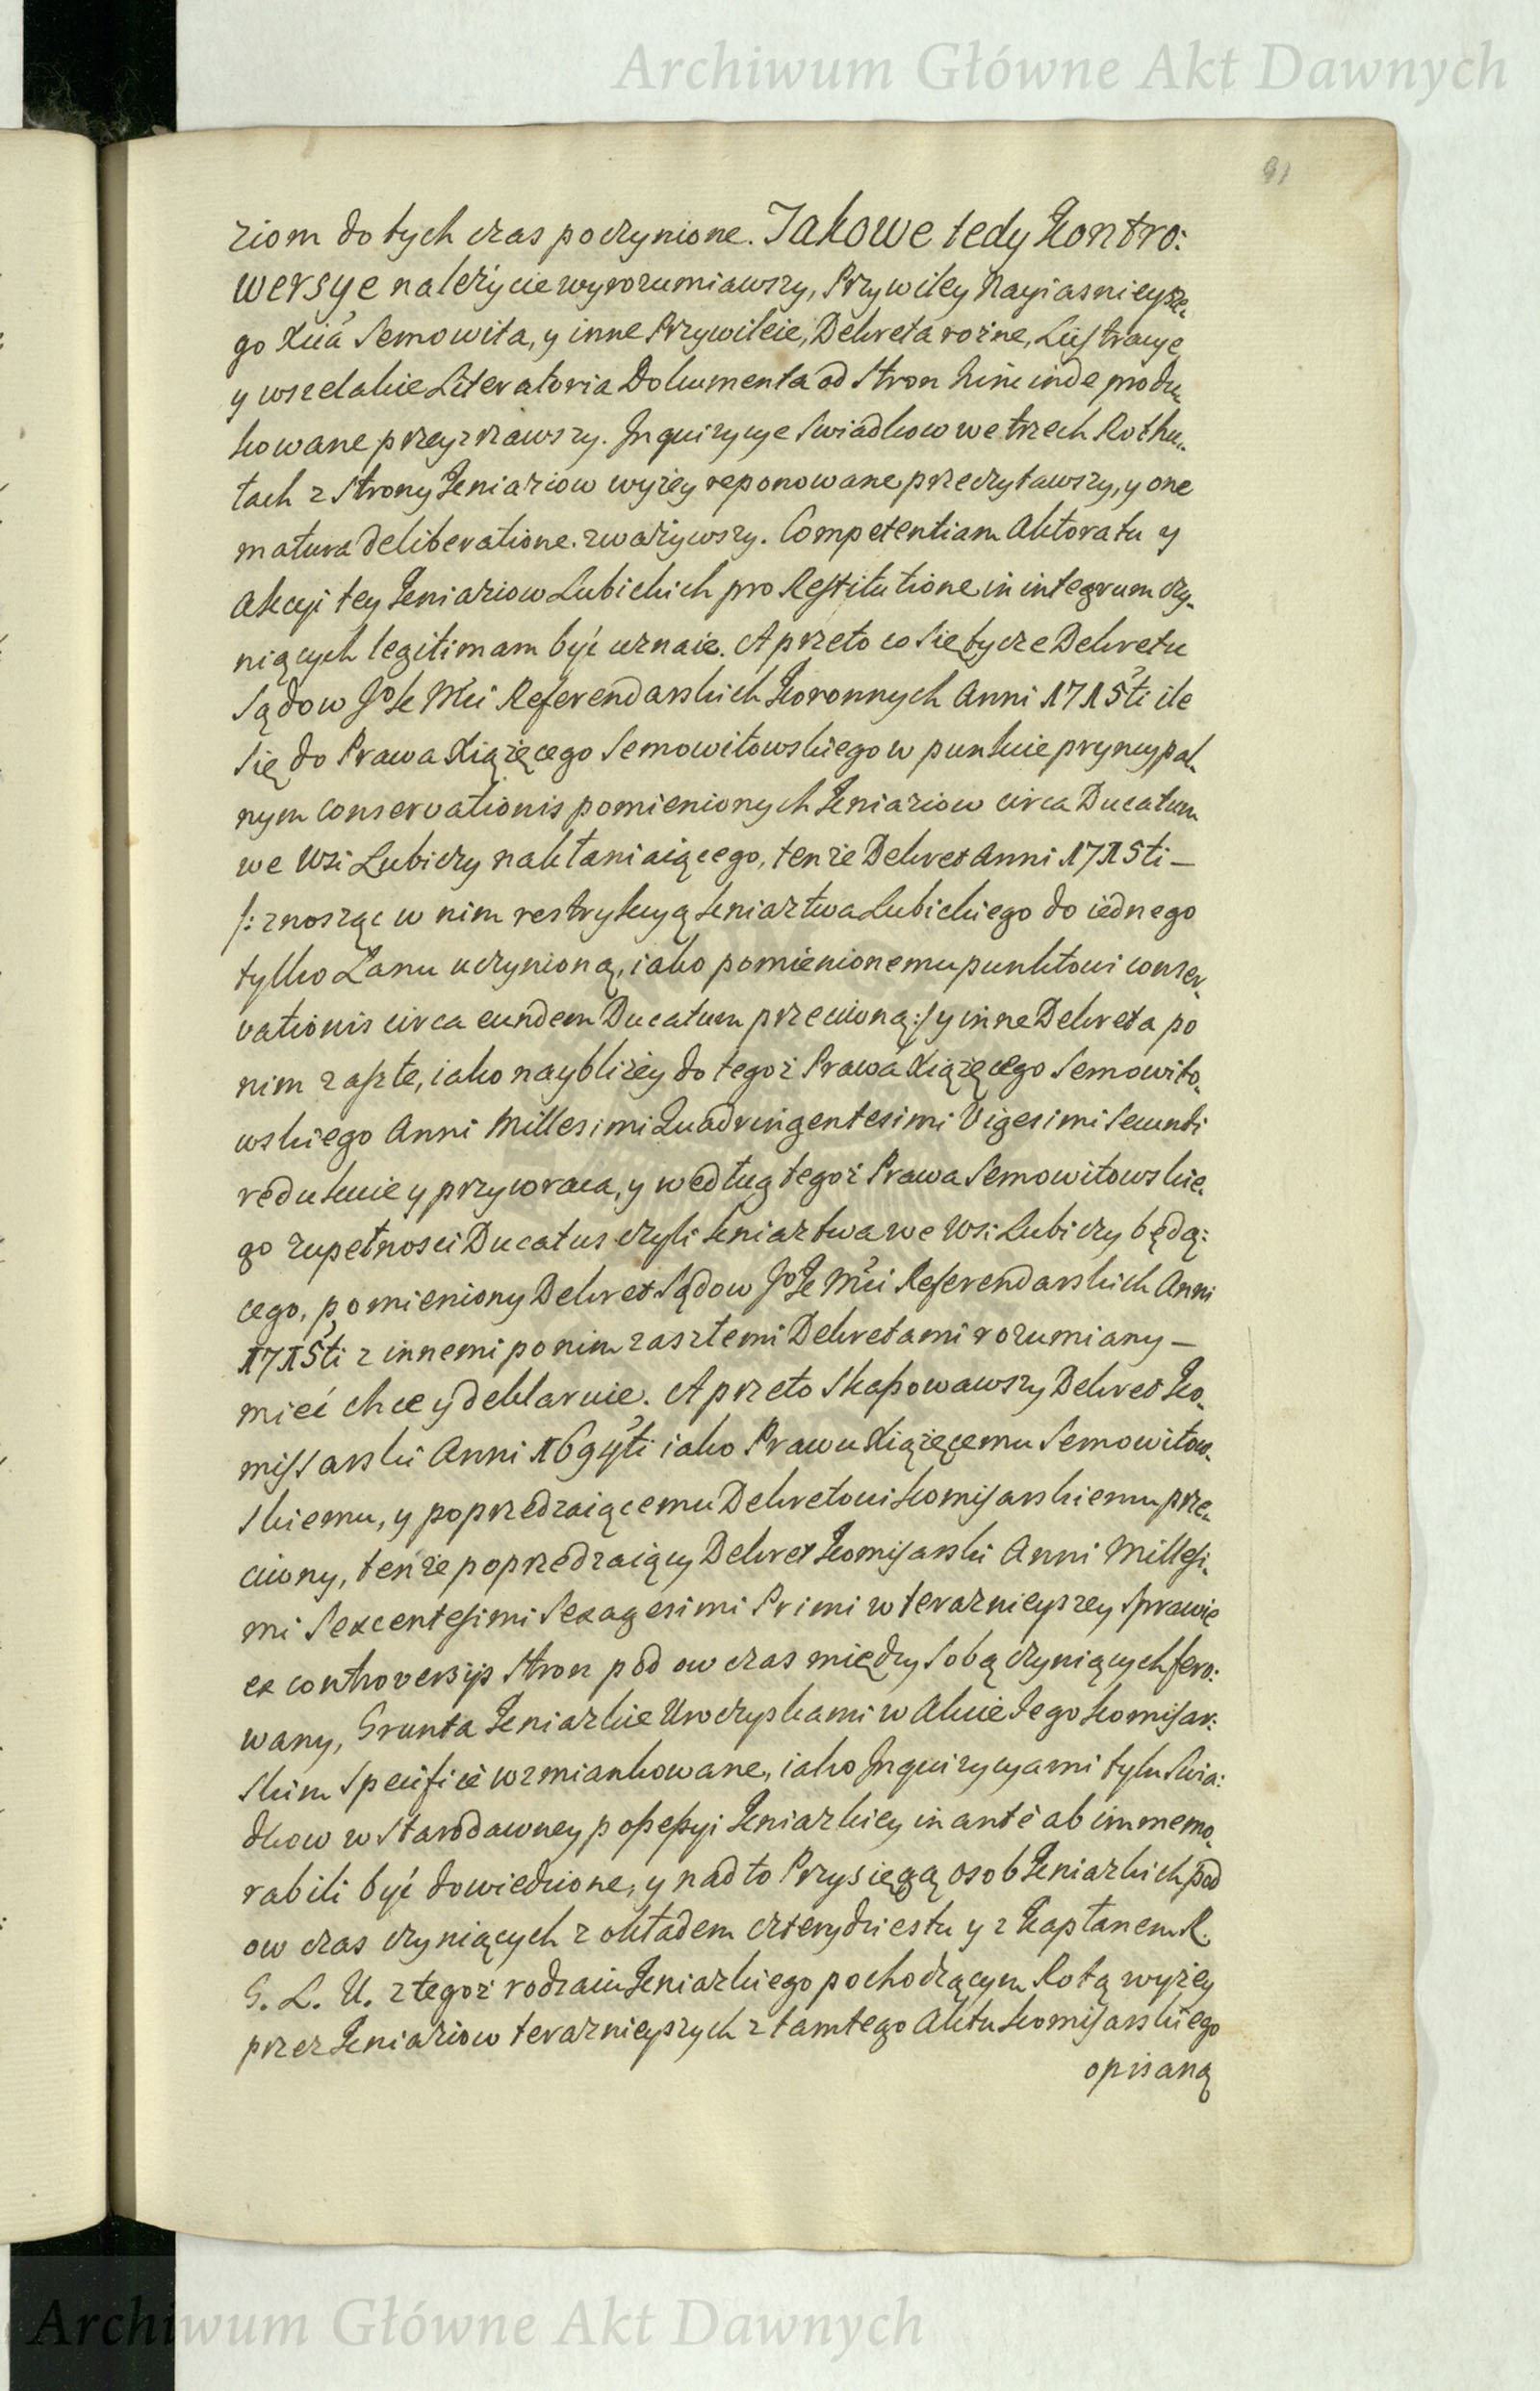 Archiwum Główne Akt Dawnych
91
ziom do tych czas poczynione. Jakowe tedy Kontro:
wersye należycie wyrozumiawszy, Przywiley Nayiasnieysze„
go Xcia Semowita, y inne Przywileie, Dekreta rożne, Lustracye
y wszelakie Literatoria Dokumenta od Stron hinc inde produ„
kowane przeyzrawszy. Inquizycye Swiadkow we trzech Rothu„
łach z Strony Kmiaziow wyżey reponowane przeczytawszy, y one
matura deliberatione zważywszy. Competentiam Aktoratu y
Akcyi tey Kniaziow Lubickich pro Restitutione in integrum czy„
niących legitimam być uznaie. A przeto co się tycze Dekretu
Sądow JoKMci Referendarskich Koronnych Anni 1715ti ile
się do Prawa Xiążęcego Semowitowskiego w punkcie pryncypal„
nym conservationis pomienionych Kniaziow circa Ducatum
we Wsi Lubiczy nakłaniaiącego, tenże Dekret Anni 1715ti —
/: znosząc w nim restrykcyą kniaztwa Lubickiego do iednego
tylko Łanu uczynioną, iako pomienionemu punktowi conser„
vationis circa eundem Ducatum przeciwną :/ y inne Dekreta po
nim zaszłe, iako naybliżey do tegoż Prawa Xiążęcego Semowito„
wskiego Anni Millesimi Quadringentesimi Vigesimi Secundi
redukuie y przywraca, y według tegoż Prawa Semowitowskie„
go zupełnosci Ducatus czyli kniaztwa we Wsi Lubiczy będą:
cego, pomieniony Dekret Sądow JoKMci Referendarskich Anni
1715ti z innemi po nim zaszłemi Dekretami rozumiany —
mieć chce y deklaruie. A przeto skassowawszy Dekret Ko„
missarski Anni 1694ti iako Prawu Xiążęcemu Semowitow„
skiemu, y poprzedzaiącemu Dekretowi Komisarskiemu prze„
ciwny, tenże poprzedzaiący Dekret Komisarski Anni Millesi„
mi Sexcentesimi Sexagesimi Primi w terazнieyszey Sprawie
ex controversijs Stron pod ow czas między sobą czyniących fero:
wany, Grunta Kniazkie Uroczyskami w Akcie tego Komisar:
skim Specificè wzmiankowane, iako Inquizycyami tylu Swia:
dkow w Starodawney possessyi Kniazkiey in antè ab immemo„
rabili być dowiedzione, y nad to Przysięgą osob Kniazkich pod
ow czas czyniących z okładem czterydziestu y z Kapłanem R.
G. L. U. z tegoż rodzaiu Kniazkiego pochodzącym Rotą wyżey
przez Kniaziow teraznieyszych z tamtego Aktu Komisarskiego
opisaną
Archiwum Główne Akt Dawnych